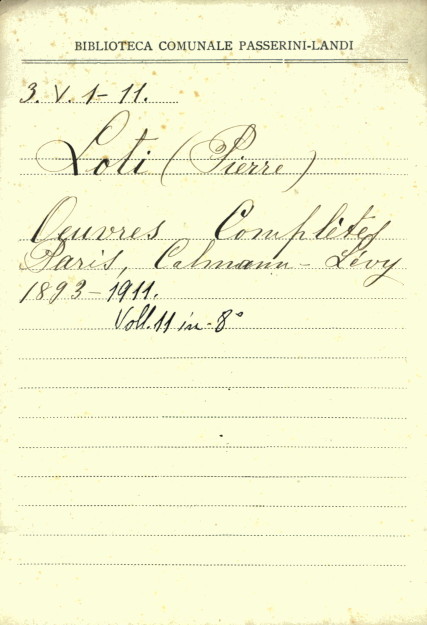 BIBLIOTECA COMUNALE PASSERINI-LANDI
3. V. 1-11.
Loti (Pierre)
Oeuvres Complètes
Paris, Calmann-Lévy
1893-1911.
Voll. 11 in-8°